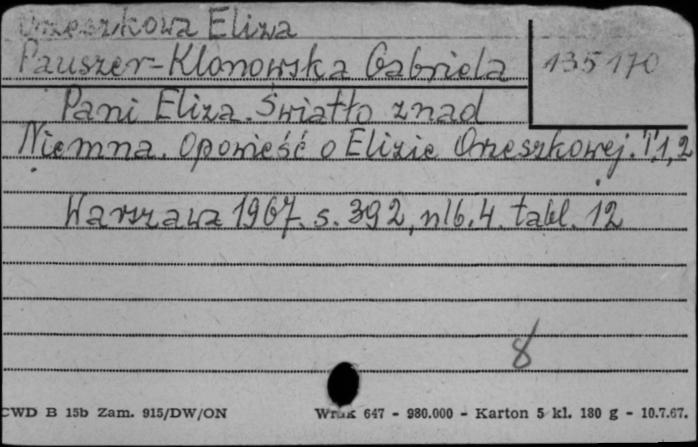 Orzeszkowa Eliza
Pauszer-Klonowska Gabriela
135170
Pani Eliza. Światło znad
Niemna. Opowieść o Elizie Orzeszkowej. T.1,2
Warszawa 1967. s. 392, nlb. 4. tabl. 12
8
CWD B 15b Zam. 915/DW/ON Wrak 647 - 980.000 - Karton 5 kl. 180 g - 10.7.67.